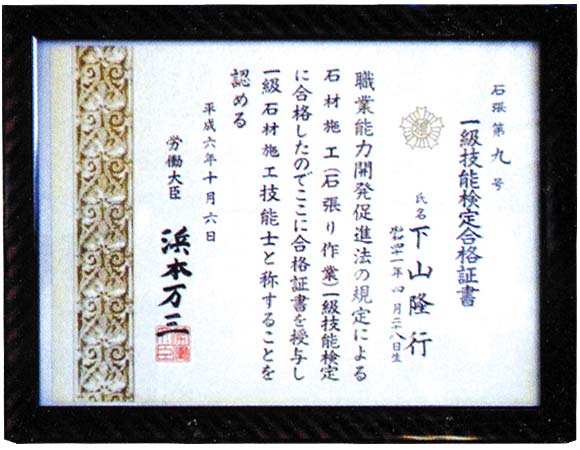 石張第九号
一級技能検定合格証書
氏名 下山隆行
昭和四十一年四月二十八日生
職業能力開発促進法の規定による
石材施工(石張り作業)一級技能検定
に合格したのでここに合格証書を授与し
一級石材施工技能士と称することを
認める
平成六年十月六日
労働大臣
浜本万三